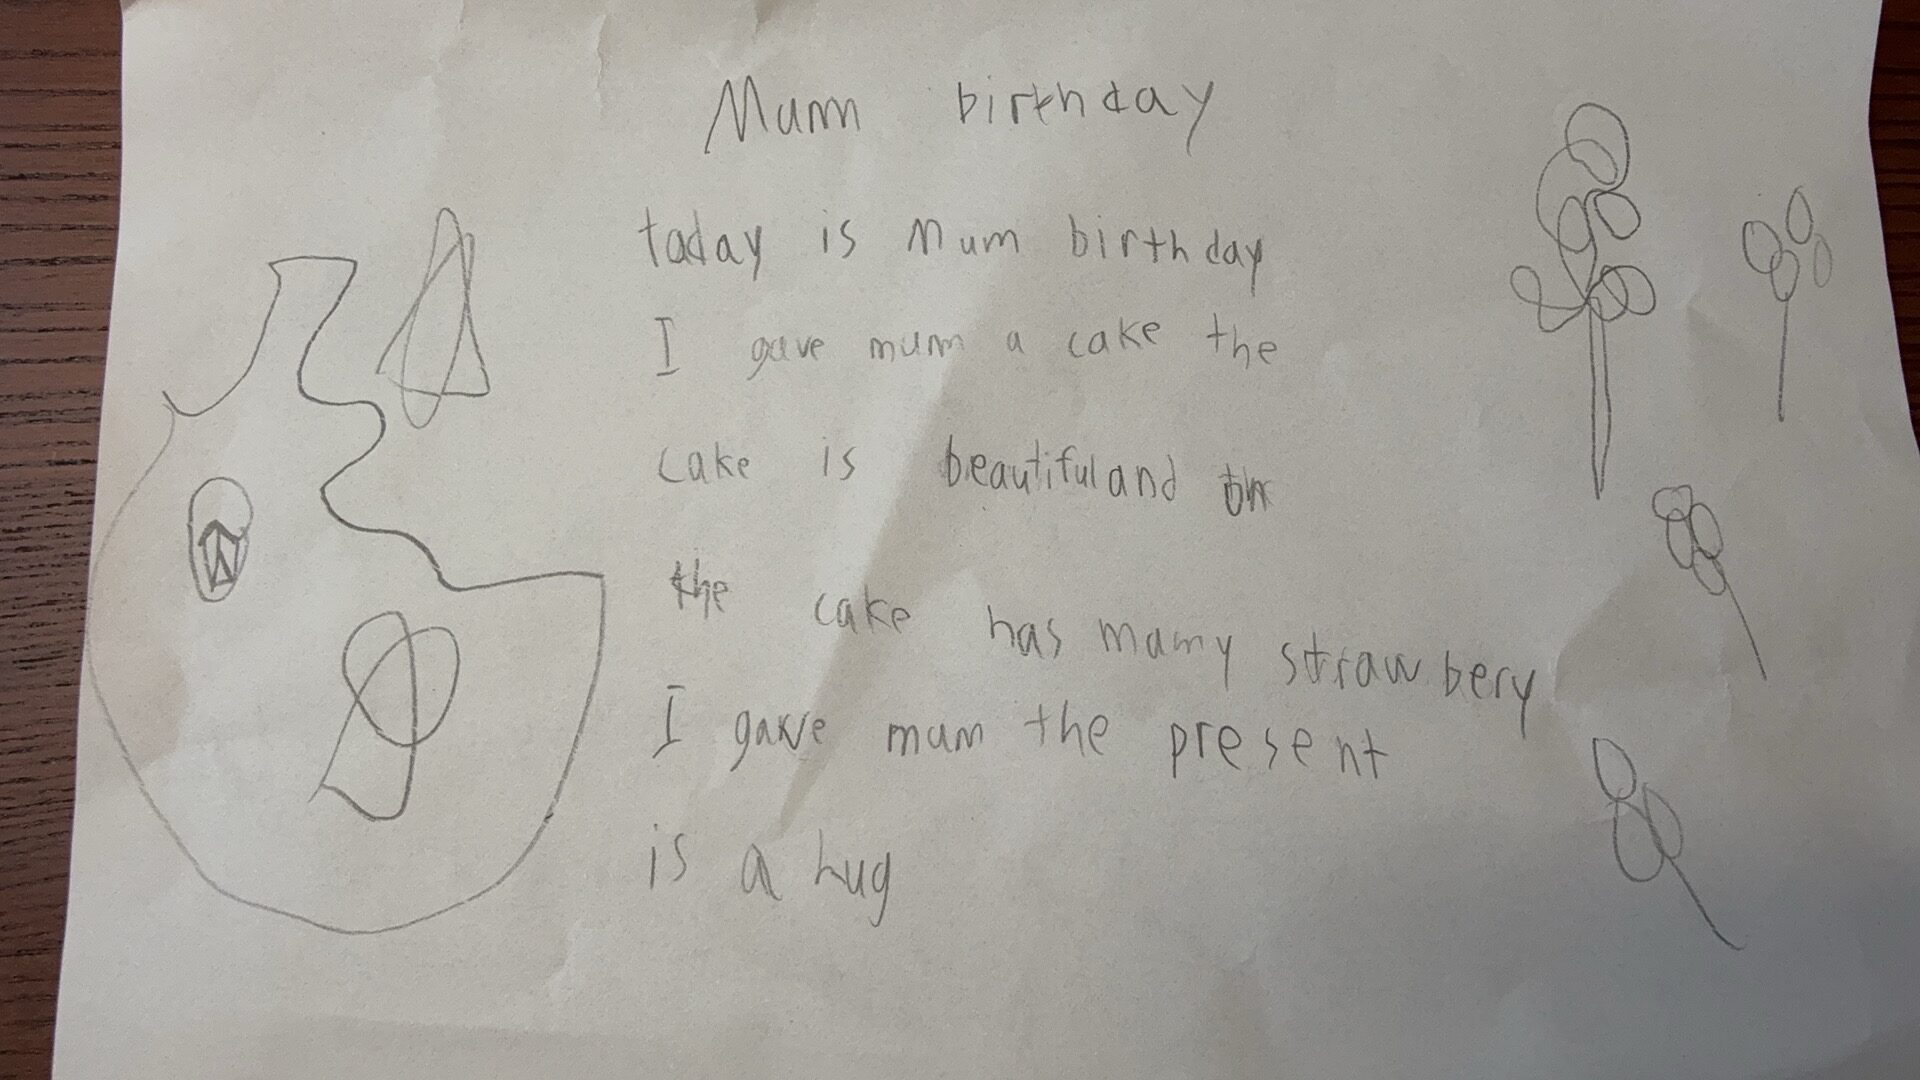 Mum birthday
today is mum birthday
I gave mum a cake the
cake is beautiful and
the cake has mamy strawbery
I gave mum the present
is a hug